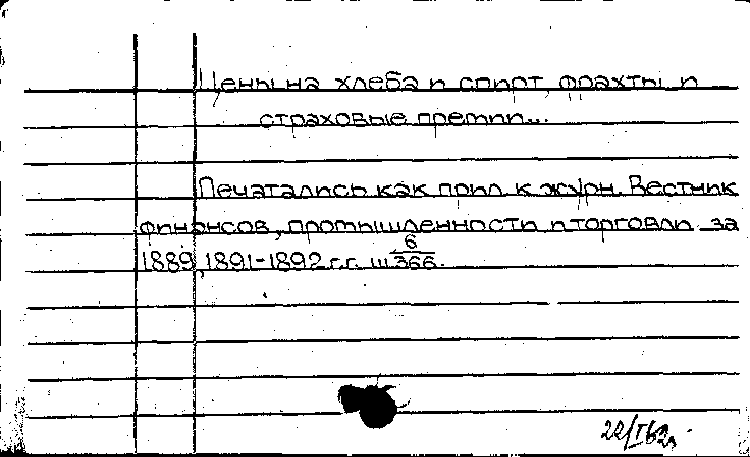 Цены на хлеба и спирт, фрахты и
страховые премии...
Печатались как прил. к журн. Вестник
финансов, промышленности и торговли за
1889, 1891-1892 г.г. ш 6/366.
22/I 62г.